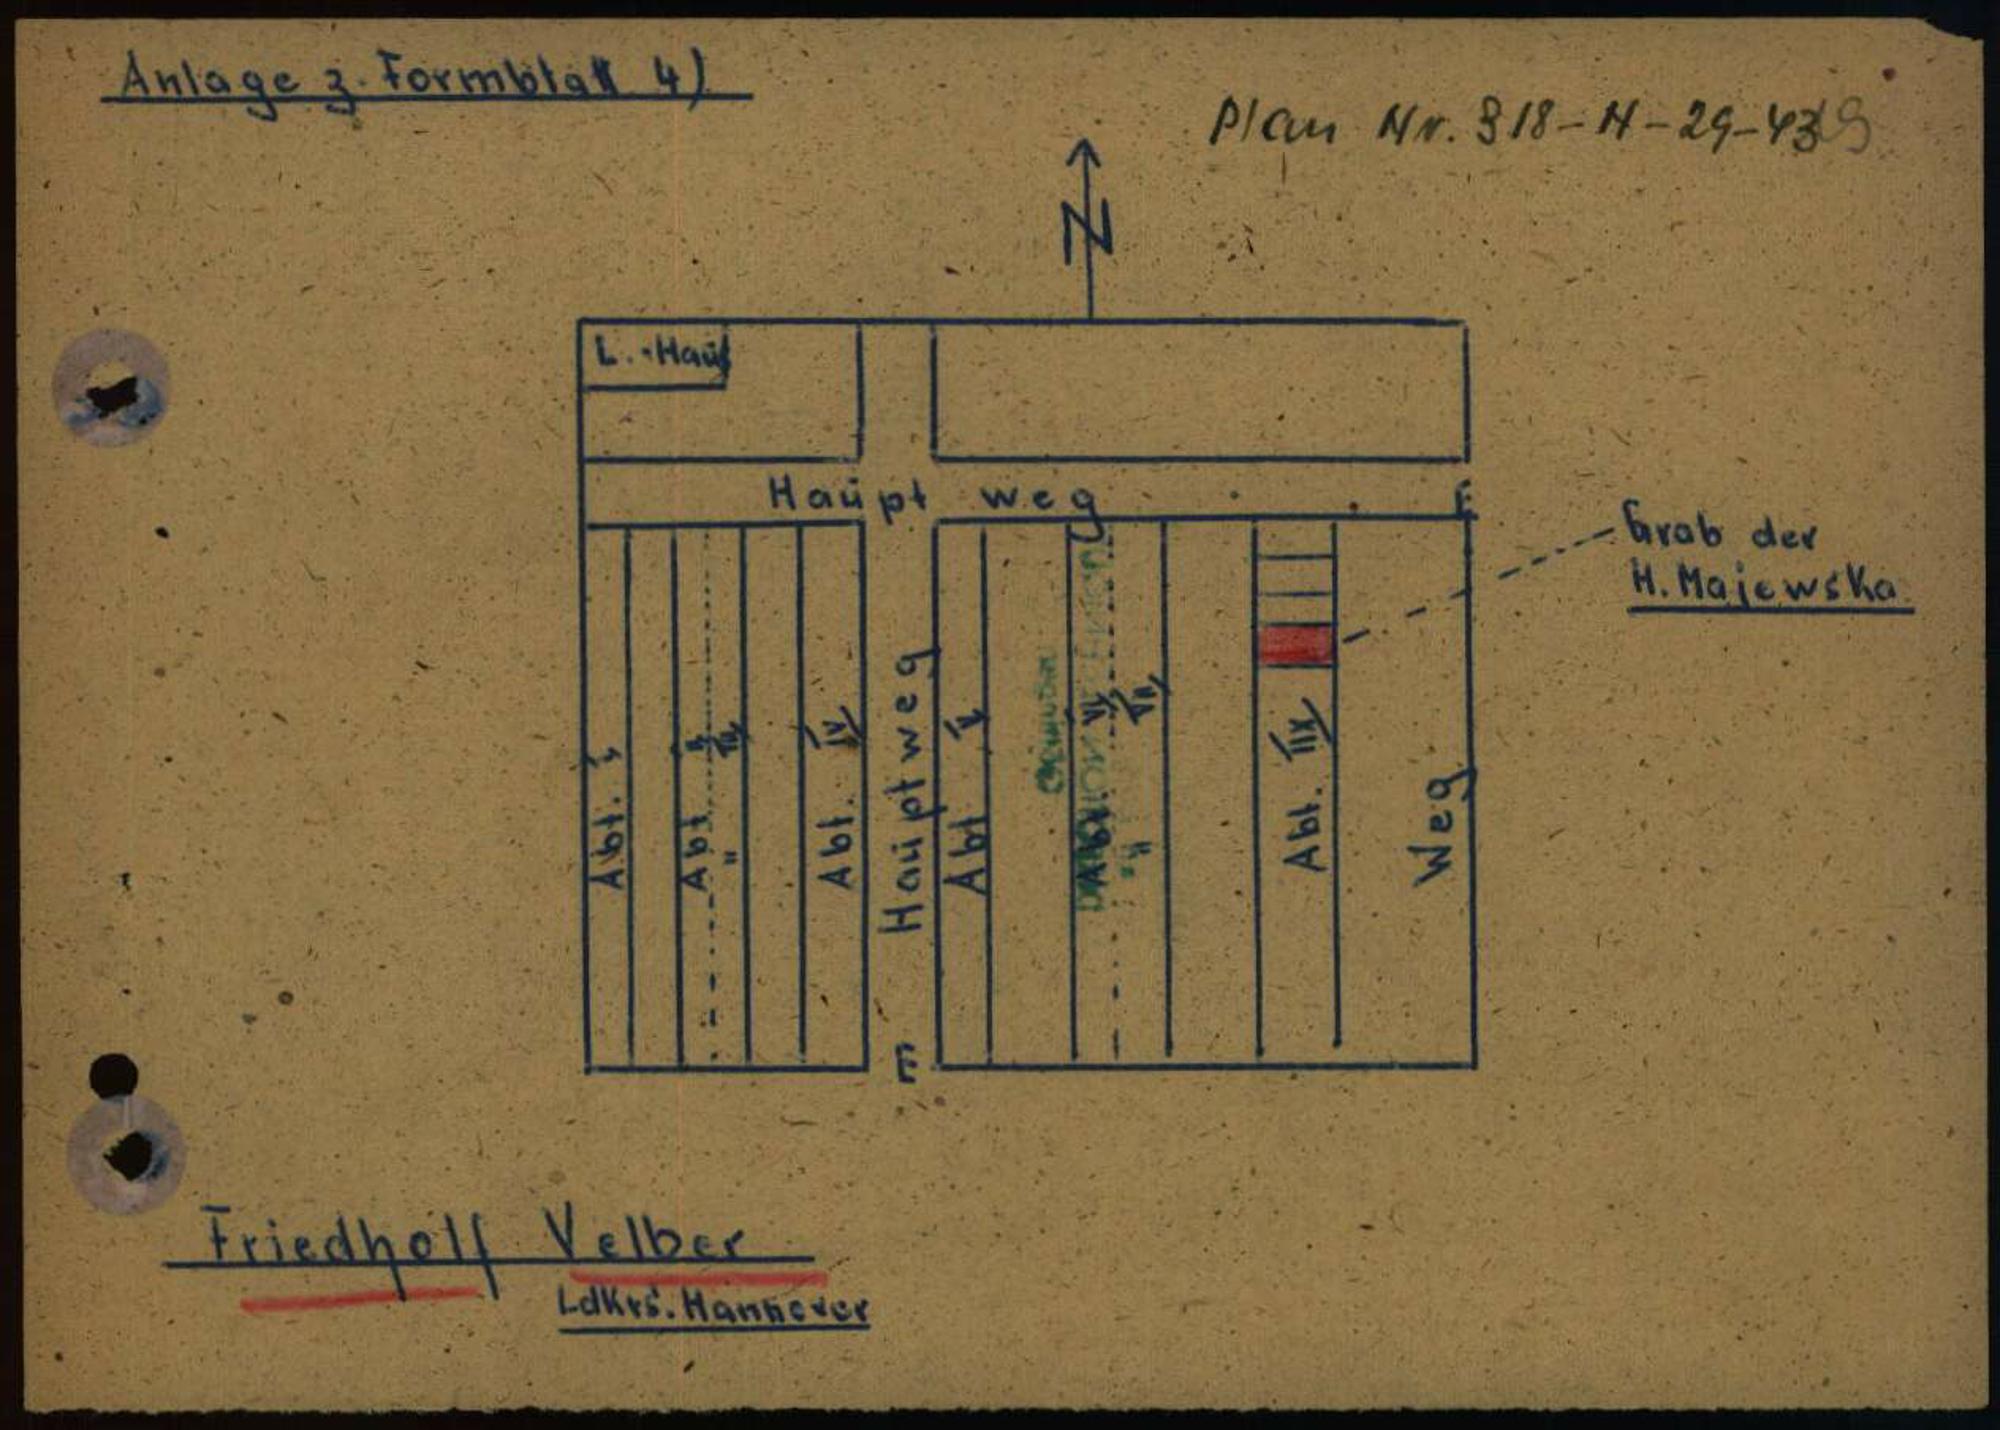 Anlage z. Formblatt 4)
Plan Nr. 318-H-29-43
N
L.-Haus
Haupt weg
E
Grab der
H. Majewska
Abt. I
Abt. II
" III
Abt. IV
Hauptweg
Abt V
Abt. VI
" VII
Abt. IIX
Weg
E
Friedhoff Velber
LdKrs. Hannover